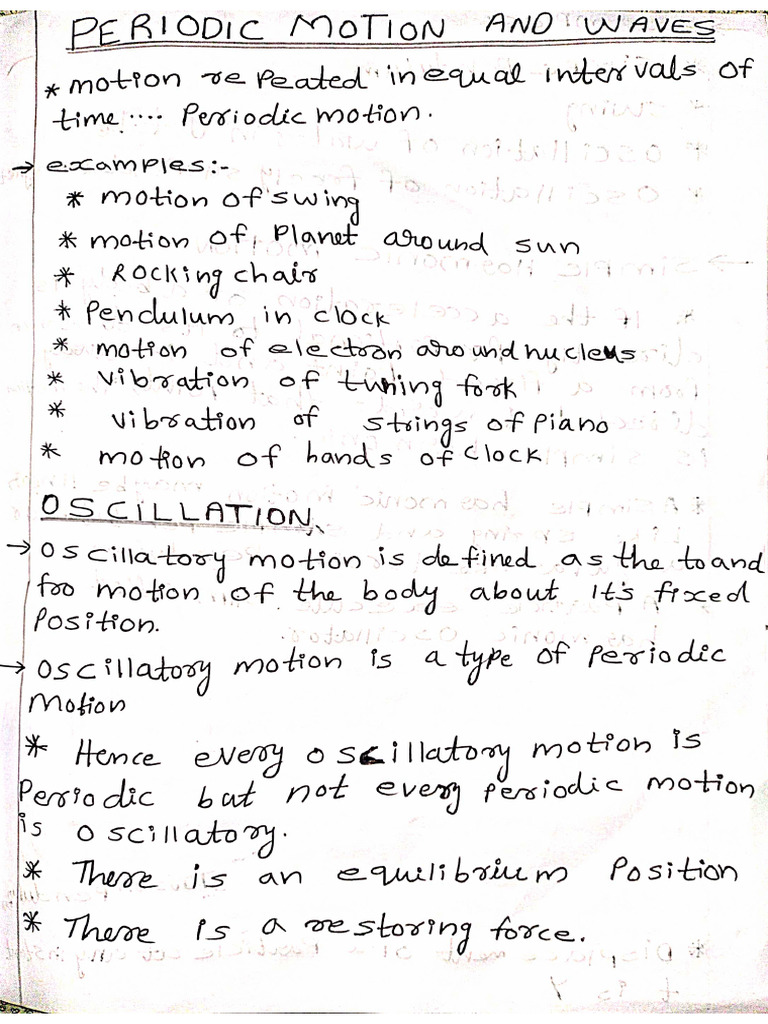 PERIODIC MOTION AND WAVES
* motion repeated in equal intervals of
time.... Periodic motion.
→ examples:-
* motion of swing
* motion of Planet around sun
* ROCKing chair
* Pendulum in clock
* motion of electron around nucleus
* vibration of tuning fork
* vibration of strings of Piano
* motion of hands of clock
OSCILLATION
→ Oscillatory motion is defined as the to and
fro motion of the body about It's fixed
Position.
→ Oscillatory motion is a type of Periodic
Motion
* Hence every oscillatory motion is
Periodic but not every periodic motion
is oscillatory.
* There is an equilibrium Position
* There is a restoring force.